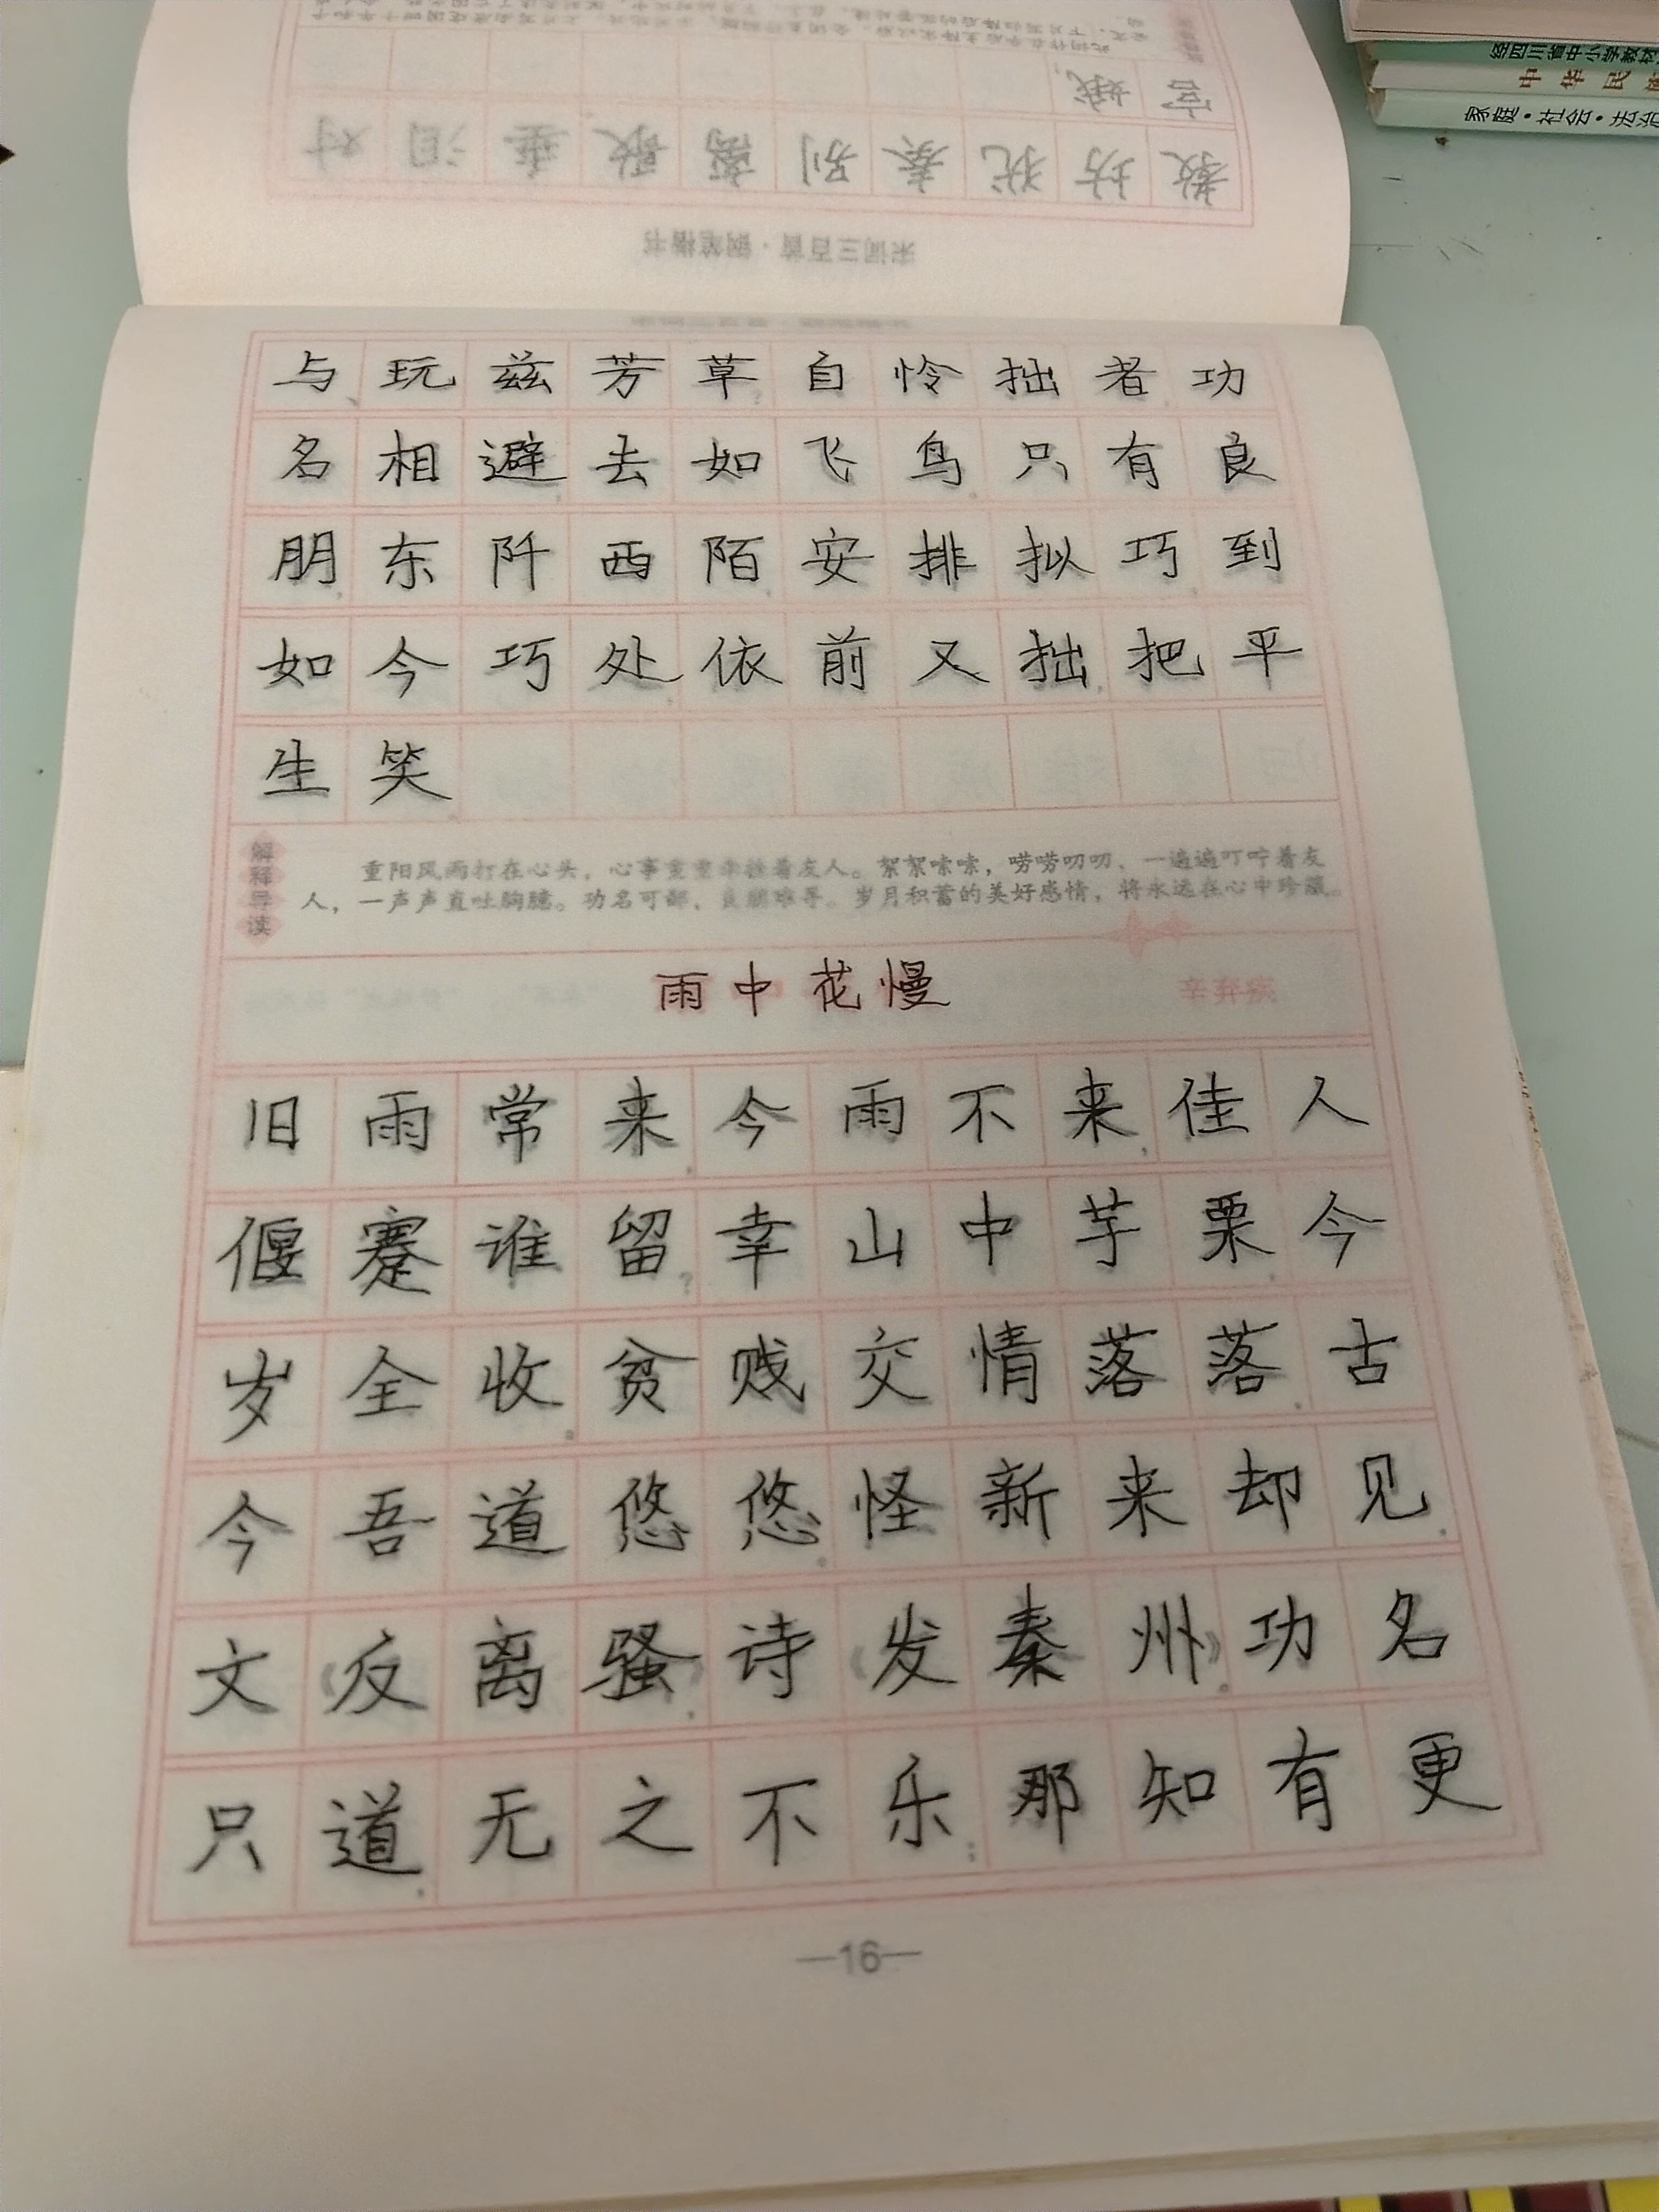 经四川省中小学教材
中华民
家庭·社会·法治
宫蛾
教坊犹奏别离歌垂泪对
宋词三百首·钢笔楷书
与、玩兹芳草自怜拙者功
名相避去如飞鸟只有良
朋东阡西陌安排拟巧到
如今巧处依前又拙把平
生笑
解释导读
重阳风雨打在心头，心事重重牵挂着友人。絮絮嗦嗦，唠唠叨叨、一遍遍叮咛着友
人，一声声直吐胸臆。功名可鄙、良朋难寻。岁月积蓄的美好感情，将永远在心中珍藏。
雨中花慢 辛弃疾
旧雨常来，今雨不来，佳人
偃蹇谁留？幸山中芋栗，今
岁全收。贫贱交情落落，古
今吾道悠悠。怪新来却见，
文《反离骚》，诗《发秦州》。功名
只道，无之不乐；那知有更
—16—